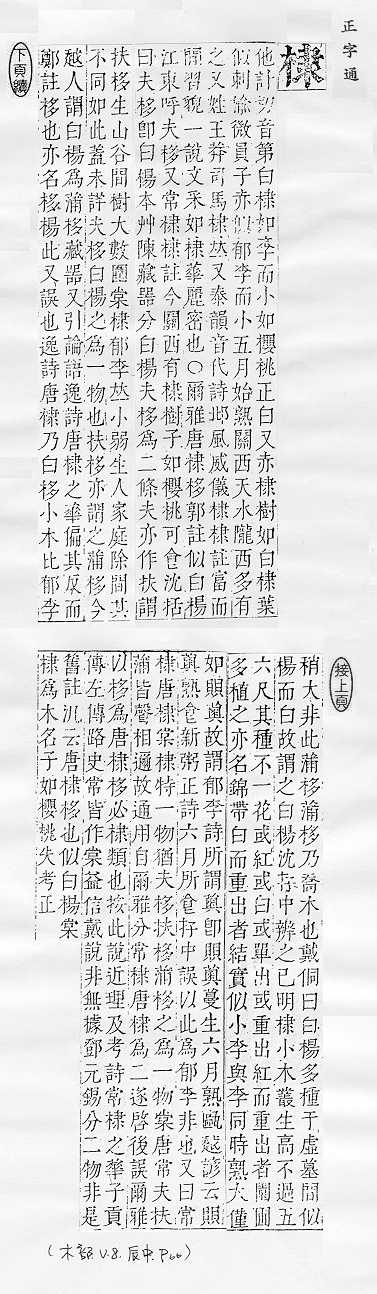 正字通
棣
他計切音第白棣如李而小如櫻桃正白又赤棣樹如白棣葉
似刺榆微圓子亦似郁李而小五月始熟關西天水隴西多有
之又姓王莽司馬棣𠀤又泰韻音代詩邶風威儀棣棣註富而
閑習貌一說文采如棣華麗密也〇爾雅唐棣栘郭註似白楊
江東呼夫栘又常棣棣註今關西有棣樹子如櫻桃可食沈括
曰夫栘卽白楊本艸陳藏器分白楊夫栘爲二條夫亦作扶謂
扶栘生山谷間樹大數圍棠棣郁李𠀤小弱生人家庭除間其
不同如此蓋未詳夫栘白楊之爲一物也扶栘亦謂之蒲栘今
越人謂白楊爲蒲栘藏器又引論語逸詩唐棣之華偏其反而
鄭註栘也亦名栘楊此又誤也逸詩唐棣乃白栘小木比郁李
下頁續
接上頁
稍大非此蒲栘蒲栘乃喬木也戴侗曰白楊多種于虛墓間似
楊而白故謂之白楊沈存中辨之已明棣小木叢生高不過五
六尺其種不一花或紅或白或單出或重出紅而重出者閑圃
多植之亦名錦帶白而重出者結實似小李與李同時熟大僅
如賏薁故謂郁李詩所謂薁卽賏薁蔓生六月熟甌越諺云賏
薁熟食新粥正詩六月所食存中誤以此爲郁李非也又曰常
棣唐棣棠棣特一物猶夫栘扶栘蒲栘之爲一物棠唐常夫扶
蒲皆聲相邇故通用自爾雅分常棣唐棣爲二遂啓後誤爾雅
以栘爲唐棣栘必棣類也按此說近理及考詩常棣之華子貢
傳左傳路史常皆作棠益信戴說非無據鄧元錫分二物非是
舊註汎云唐棣栘也似白楊棠
棣爲木名子如櫻桃失考正
(木部.V.8.辰中.P66)